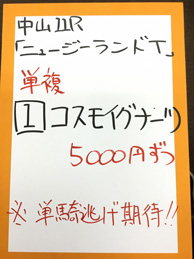 中山11R
「ニュージーランドT」
単複
1 コスモイグナーツ
5000円ずつ
※単騎逃げ期待!!